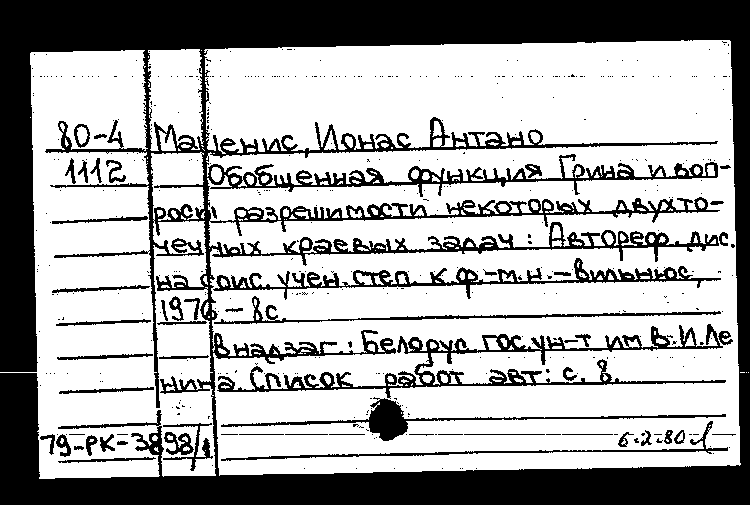 80-4 Мащенис, Ионас Антано
1112 Обобщенная функция Грина и воп-
росы разрешимости некоторых двухто-
чечных краевых задач: Автореф. дис.
на соис. учен. степ. к.ф.-м.н. - Вильнюс,
1976. - 8с.
В надзаг.: Белорус гос.ун-т им В.И.Ле
нина. Список работ авт: с. 8.
79-РК-3898/1 6-2-80